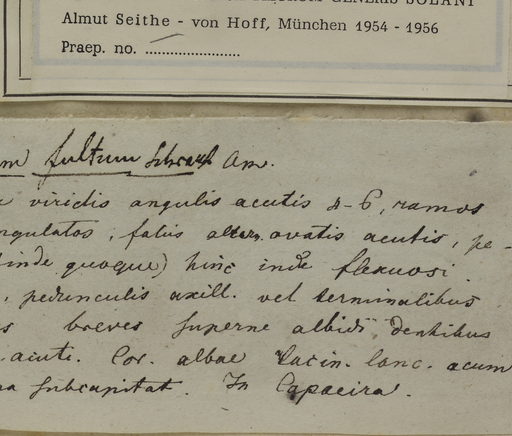 GENERIS SOLANI
Almut Seithe - von Hoff, München 1954 - 1956
Praep. no. ........................
fultum
viridis angulis acutis 4-6, ramos
ngulatos, foliis altern. ovatis acutis, pe-
inde quoque) hinc inde flexuosi.
, pedunculis axill. vel terminalibus
s breves superne albidi dentibus
acuti. Cor. albae lacin. lanc. acum
na subcapitat. In Capoeira.